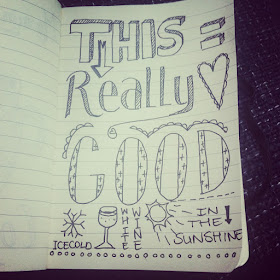 THIS =
Really
GOOD
ICECOLD WHITE WINE IN THE SUNSHINE!